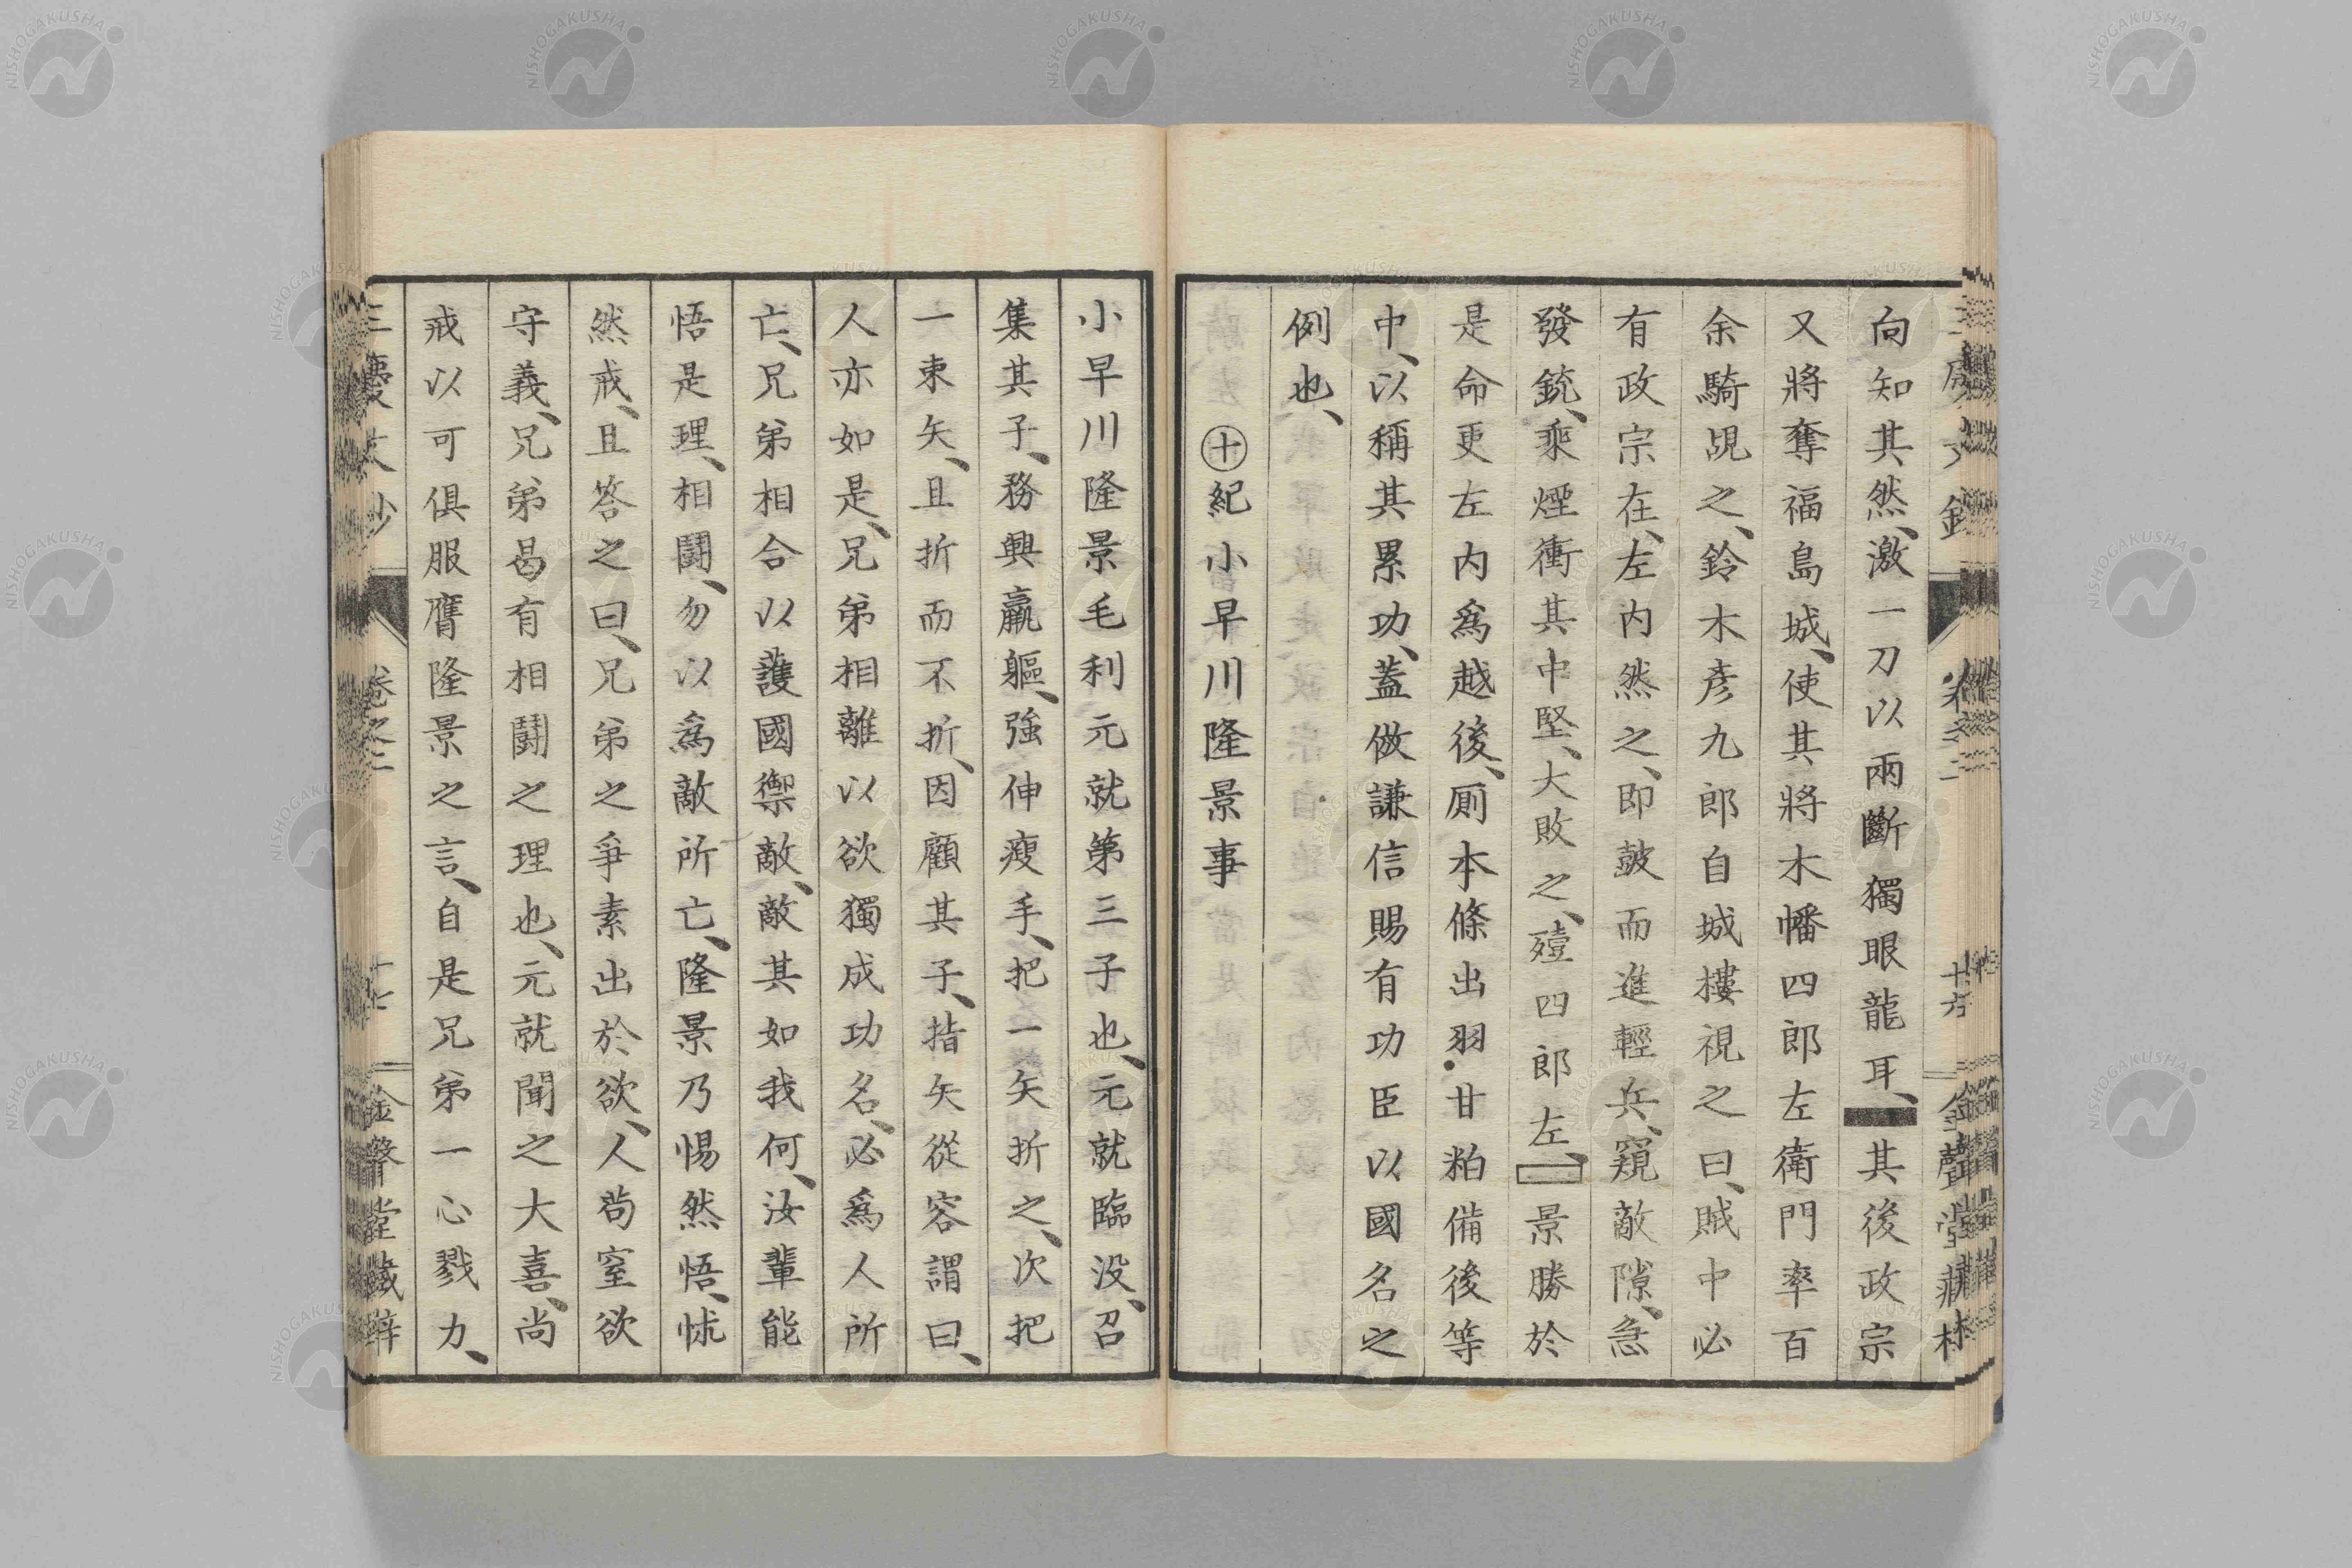 向知其然、激一刀以兩斷獨眼龍耳、其後政宗
又將奪福島城、使其將木幡四郎左衛門率百
余騎覘之、鈴木彦九郎自城樓視之曰、賊中必
有政宗在、左内然之、即鼓而進輕兵、窺敵隙、急
發銃、乘煙衝其中堅、大敗之、殪四郎左、景勝於
是命更左内爲越後、厠本條出羽・甘粕備後等
中、以稱其累功、蓋倣謙信賜有功臣以國名之
例也、
㊉紀小早川隆景事
小早川隆景毛利元就第三子也、元就臨没、召
集其子、務興羸軀、強伸瘦手、把一矢折之、次把
一束矢、且折而不折、因顧其子、指矢從容謂曰、
人亦如是、兄弟相離以欲獨成功名、必爲人所
亡、兄弟相合以護國禦敵、敵其如我何、汝輩能
悟是理、相鬪、勿以爲敵所亡、隆景乃惕然悟、怵
然戒、且答之曰、兄弟之爭素出於欲、人苟窒欲
守義、兄弟曷有相鬪之理也、元就聞之大喜、尚
戒以可倶服膺隆景之言、自是兄弟一心戮力、
三慶文鈔 卷之二 十七 金聲堂藏梓